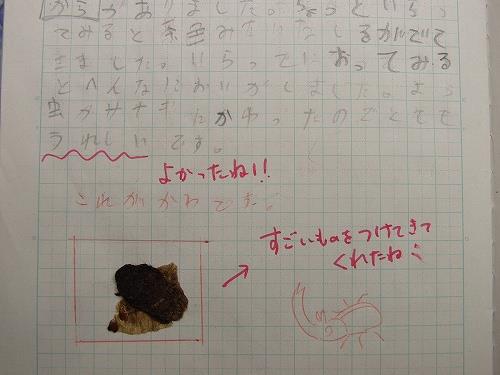 からがありました。ちょっといらっ
てみると茶色みたいなしるがでて
きました。いらってにおってみる
とへんなにおいがしました。よう
虫がサナギにかわったのでとても
うれしいです。
よかったね!!
これがかわです。
すごいものをつけてきて
くれたね